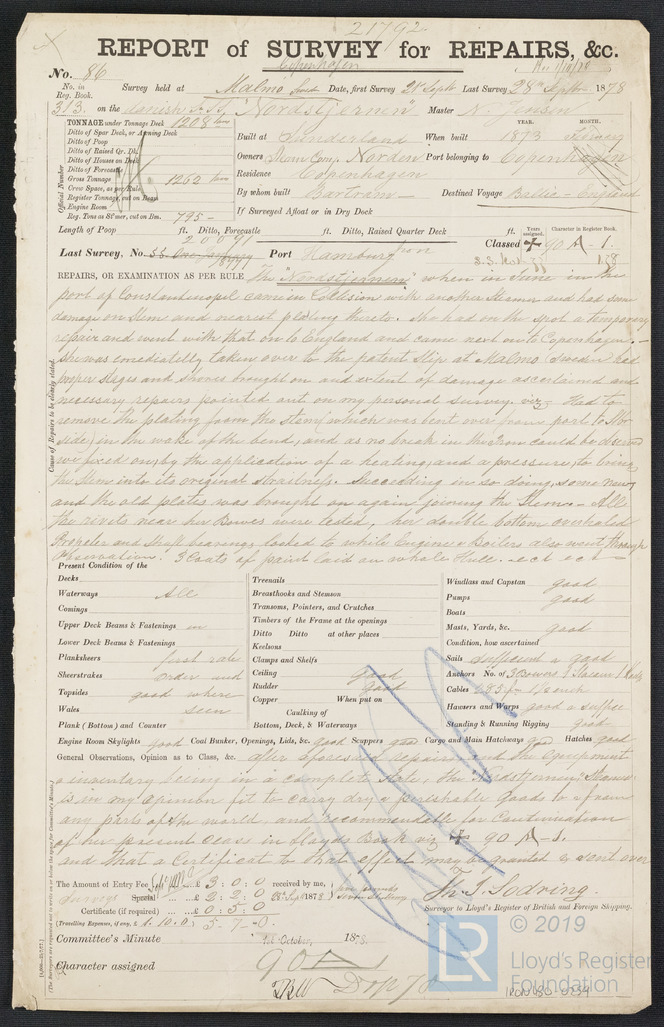 21792
REPORT of SURVEY for REPAIRS, &c.
Copenhagen
No. 86
No. in Reg. Book. Survey held at Malmo Date, first Survey 21 Septr Last Survey 28th Septr 1878
313. on the danish S.S. "Nordstjernen" Master N. Jensen
TONNAGE under Tonnage Deck 1208 tons
Ditto of Spar Deck, or Awning Deck
Ditto of Poop
Ditto of Raised Qr. Dk.
Ditto of Houses on Deck
Ditto of Forecastle
Gross Tonnage 1262 tons
Crew Space, as per Rule
Register Tonnage, cut on Beam
Engine Room
Reg. Tons as St'mer, cut on Bm. 795 -
Official Number
YEAR. MONTH.
Built at Sunderland When built 1873
Owners Steam Comp. Norden Port belonging to Copenhagen
Residence Copenhagen
By whom built Bartram Destined Voyage Baltic - England
If Surveyed Afloat or in Dry Dock
Length of Poop ft. Ditto, Forecastle ft. Ditto, Raised Quarter Deck ft.
Years assigned. Character in Register Book.
20091
Classed ✠ 90 A - 1.
Last Survey, No. Port Hamburg
Iron
REPAIRS, OR EXAMINATION AS PER RULE the "Nordstjernen" when in June in the
port of Constantinopel came in Collision with another Steamer and had some
damage on Stem and nearest plating thereto. She had on the spot a temporary
repair and went with that on to England and came next on to Copenhagen. -
She was imediatelly taken over to the patent Slip at Malmo Sweden had
proper stages and shores brought on and extent of damage ascertained and
necessary repairs pointed out on my personal survey. viz Had to
remove the plating from the Stem (which was bent over from port to Stbr
side) in the wake of the bend, and as no break in the Iron could be
we fixed on, by the application of a heating, and a pressure, to bring
the Stem into its original straitness. Succedding in so doing, some new
and the old plates was brought on again joining the Stem. - All
the rivets near her Bowes were tested, her double bottom overhaled
Propeller and Shaft bearings looked to while Engine & Boilers also went through
Observation. 3 Coats of paint laid on whole Hull. - ect ect -
Cause of Repairs to be clearly stated.
Present Condition of the
Decks
Waterways All
Comings
Upper Deck Beams & Fastenings in
Lower Deck Beams & Fastenings
Planksheers first rate
Sheerstrakes order and
Topsides good where
Wales seen
Plank (Bottom) and Counter
Treenails
Breasthooks and Stemson
Transoms, Pointers, and Crutches
Timbers of the Frame at the openings
Ditto Ditto at other places
Keelsons
Clamps and Shelfs
Ceiling good
Rudder good
Copper When put on
Caulking of
Bottom, Deck, & Waterways
Windlass and Capstan good
Pumps good
Boats
Masts, Yards, &c. good
Condition, how ascertained
Sails sufficient & good
Anchors No. of 3 Bowers 1 Stream 1 Kedg
Cables 285 f-
Hawsers and Warps good & suffic
Standing & Running Rigging good
Engine Room Skylights good Coal Bunker, Openings, Lids, &c. good Scuppers good Cargo and Main Hatchways good Hatches good
General Observations, Opinion as to Class, &c. after aforesaid repairs and the Equipment
& inventary being in a complete state, the "Nordstjernen" Steamer
is in my opinion fit to carry dry & perishable Goods to & from
any parts of the world, and recommendable for Continuation
of her present class in Lloyds Book viz ✠ 90 A - 1.
and that a Certificate to that effect may be granted & sent over
(The Surveyors are requested not to write on or below the space for Committee's Minute.)
The Amount of Entry Fee £ 3 : 0 : 0 received by me,
Special £ 2 : 2 : 0 28th Septr 1878.
Certificate (if required) £ 0 : 5 : 0
(Travelling Expenses, if any, £ 1. 10. 0.) 5 - 7 - 0.
Th. S. Sodring.
Surveyor to Lloyd's Register of British and Foreign Shipping.
Committee's Minute 1st October, 1878.
Character assigned 90 A 1
© 2019
LR
Lloyd's Register
Foundation